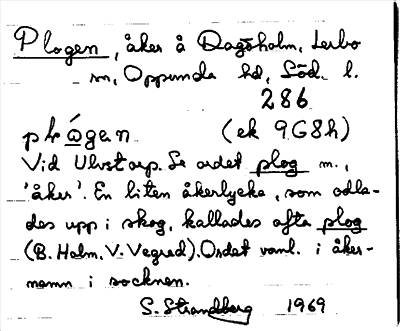 Plogen, åker å Dagsholm, Lerbo
sn, Oppunda hd, Söd. l.
286
plógen (ek 9G8h)
Vid Ulvstorp. Se ordet plog m.,
'åker'. En liten åkerlycka, som odla-
des upp i skog, kallades ofta plog
(B. Holm, V. Vegred). Ordet vanl. i åker-
namn i socknen.
S. Strandberg 1969